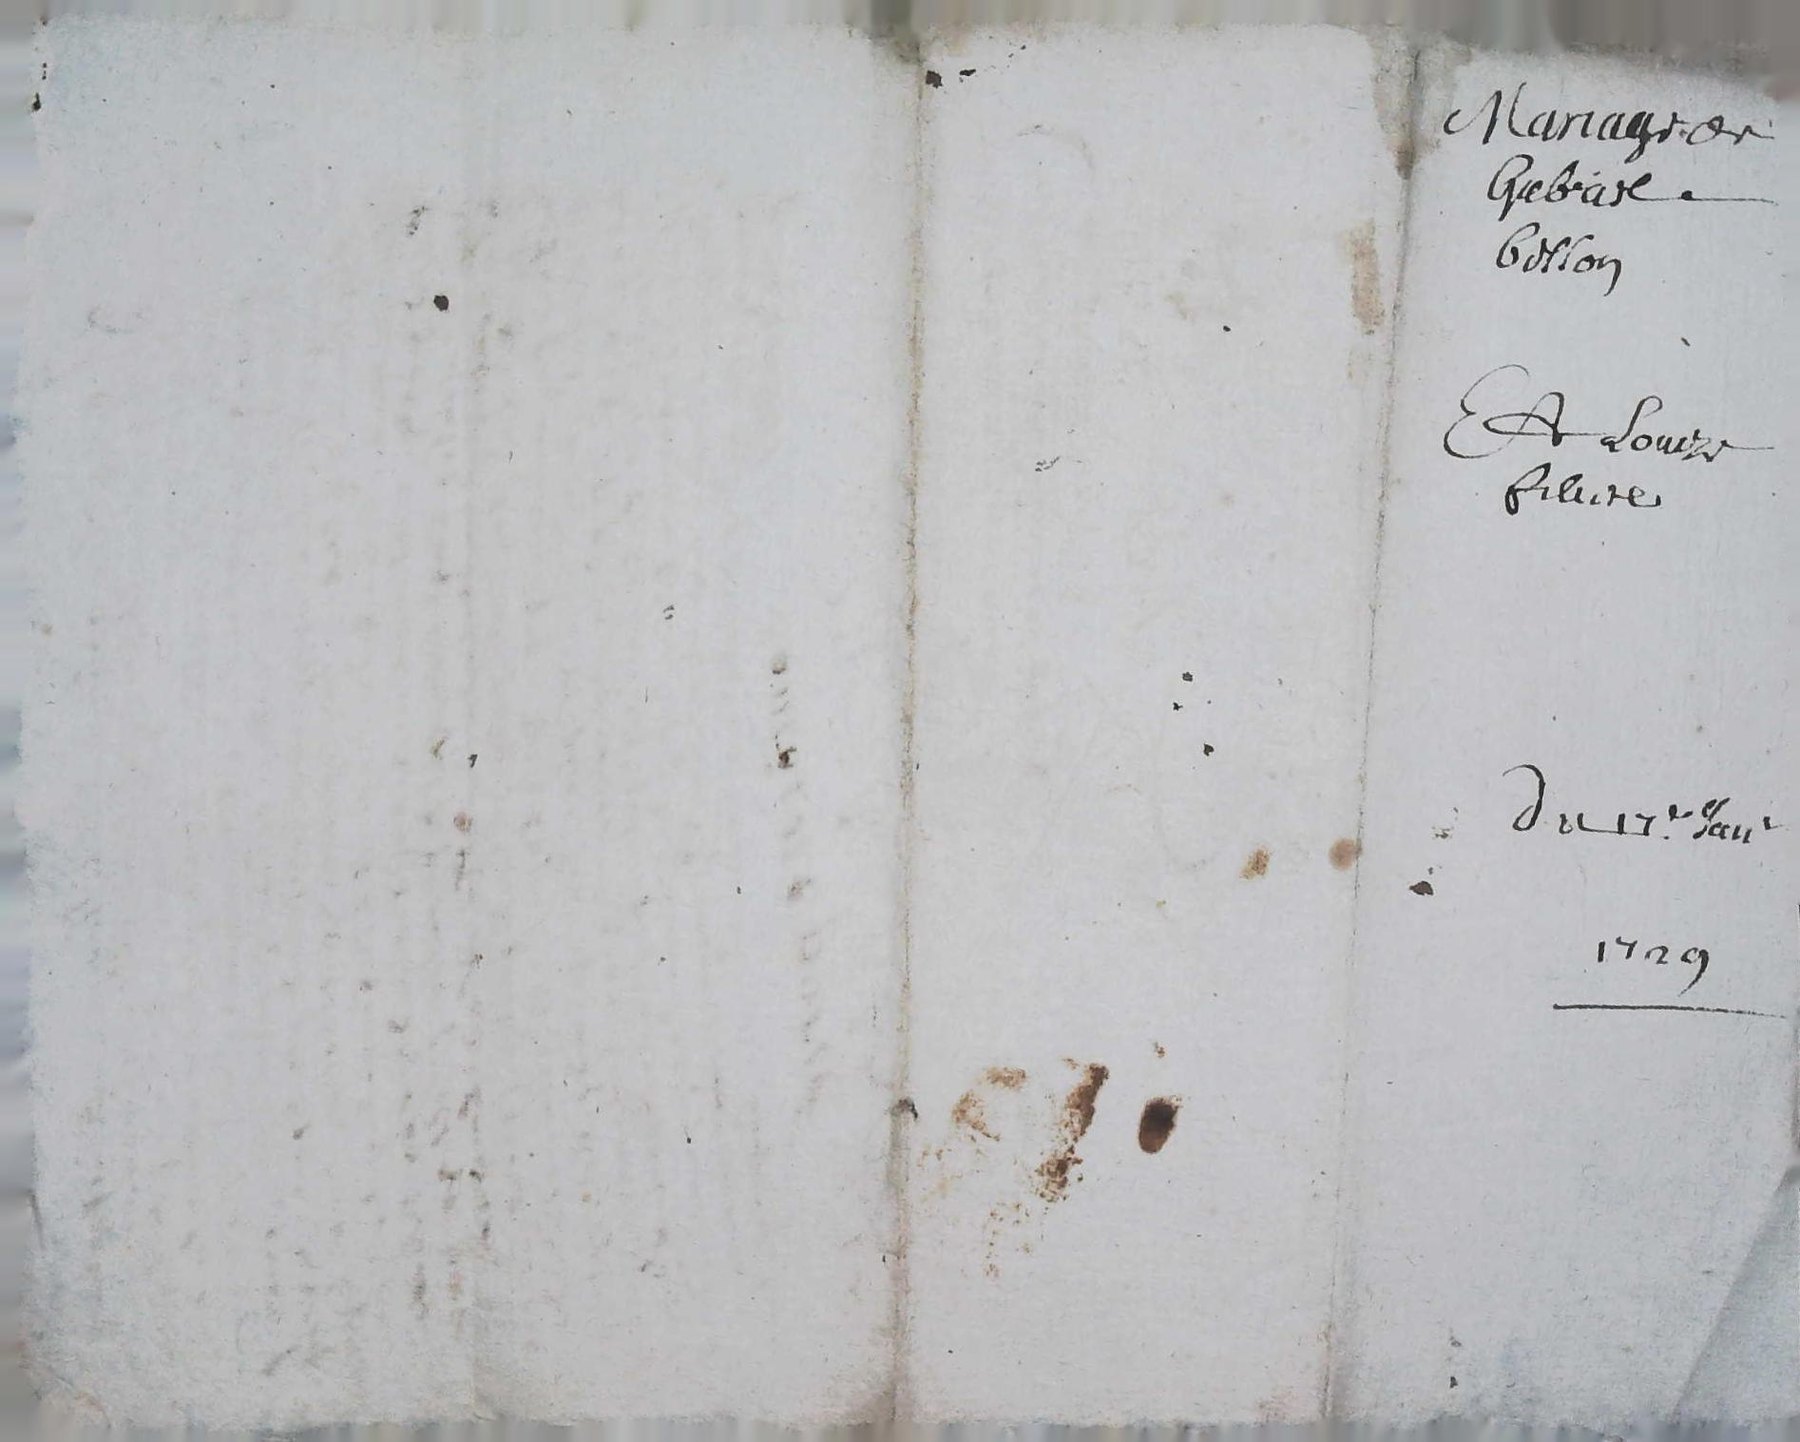 Mariage de
Gabriel
billon
Et Louize
filure
Du 17.e Janr
1729